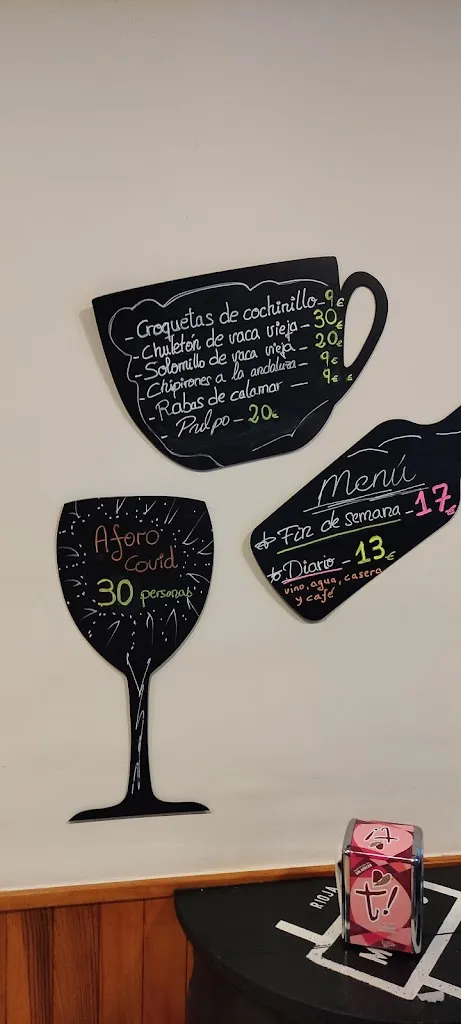 - Croquetas de cochinillo - 9€
- Chuletón de vaca vieja - 30€
- Solomillo de vaca vieja - 20€
- Chipirones a la andaluza - 9€
- Rabas de calamar - 9€
- Pulpo - 20€
Menú
Fin de semana - 17€
Diario - 13€
vino, agua, casera
y café
Aforo
Covid
30 personas
t!
t!
RIOJA
M